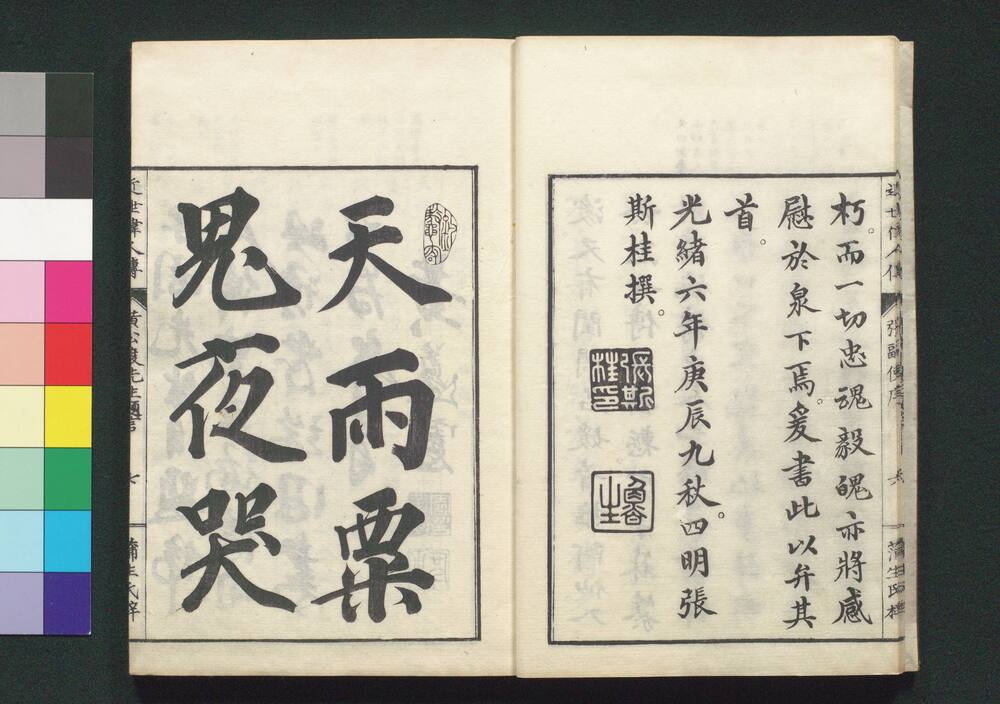 朽。而一切忠魂毅魄亦將感
慰於泉下焉。爰書此以弁其
首。
光緒六年庚辰九秋。四明張
斯桂撰。
張斯桂印
魯生
張副使序
蒲生氏梓
天雨粟
鬼夜哭
近世偉人傳
黃公度先生題言
七
蒲生氏梓